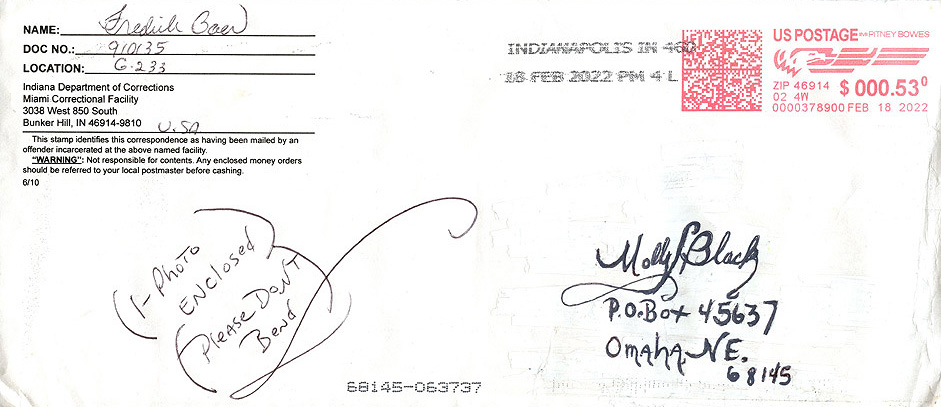 NAME: Fredrick Baer
DOC NO.: 910135
LOCATION: G-233
Indiana Department of Corrections
Miami Correctional Facility
3038 West 850 South
Bunker Hill, IN 46914-9810 USA
This stamp identifies this correspondence as having been mailed by an
offender incarcerated at the above named facility.
"WARNING": Not responsible for contents. Any enclosed money orders
should be referred to your local postmaster before cashing.
6/10
INDIANAPOLIS IN 460
18 FEB 2022 PM 4 L
US POSTAGE PITNEY BOWES
ZIP 46914
02 4W
$ 000.53⁰
0000378900 FEB 18 2022
1- PHOTO
ENClosed
Please DON'T
Bend
Molly Black
P.O.Box 45637
Omaha, NE.
68145
68145-063737